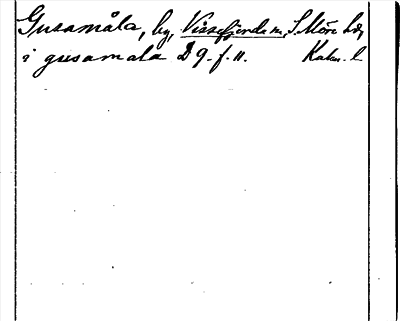 Gusamåla, by, Vissefjerda sn, S. Möre hd,
i gusamala D 9. f. 11. Kalm. l.